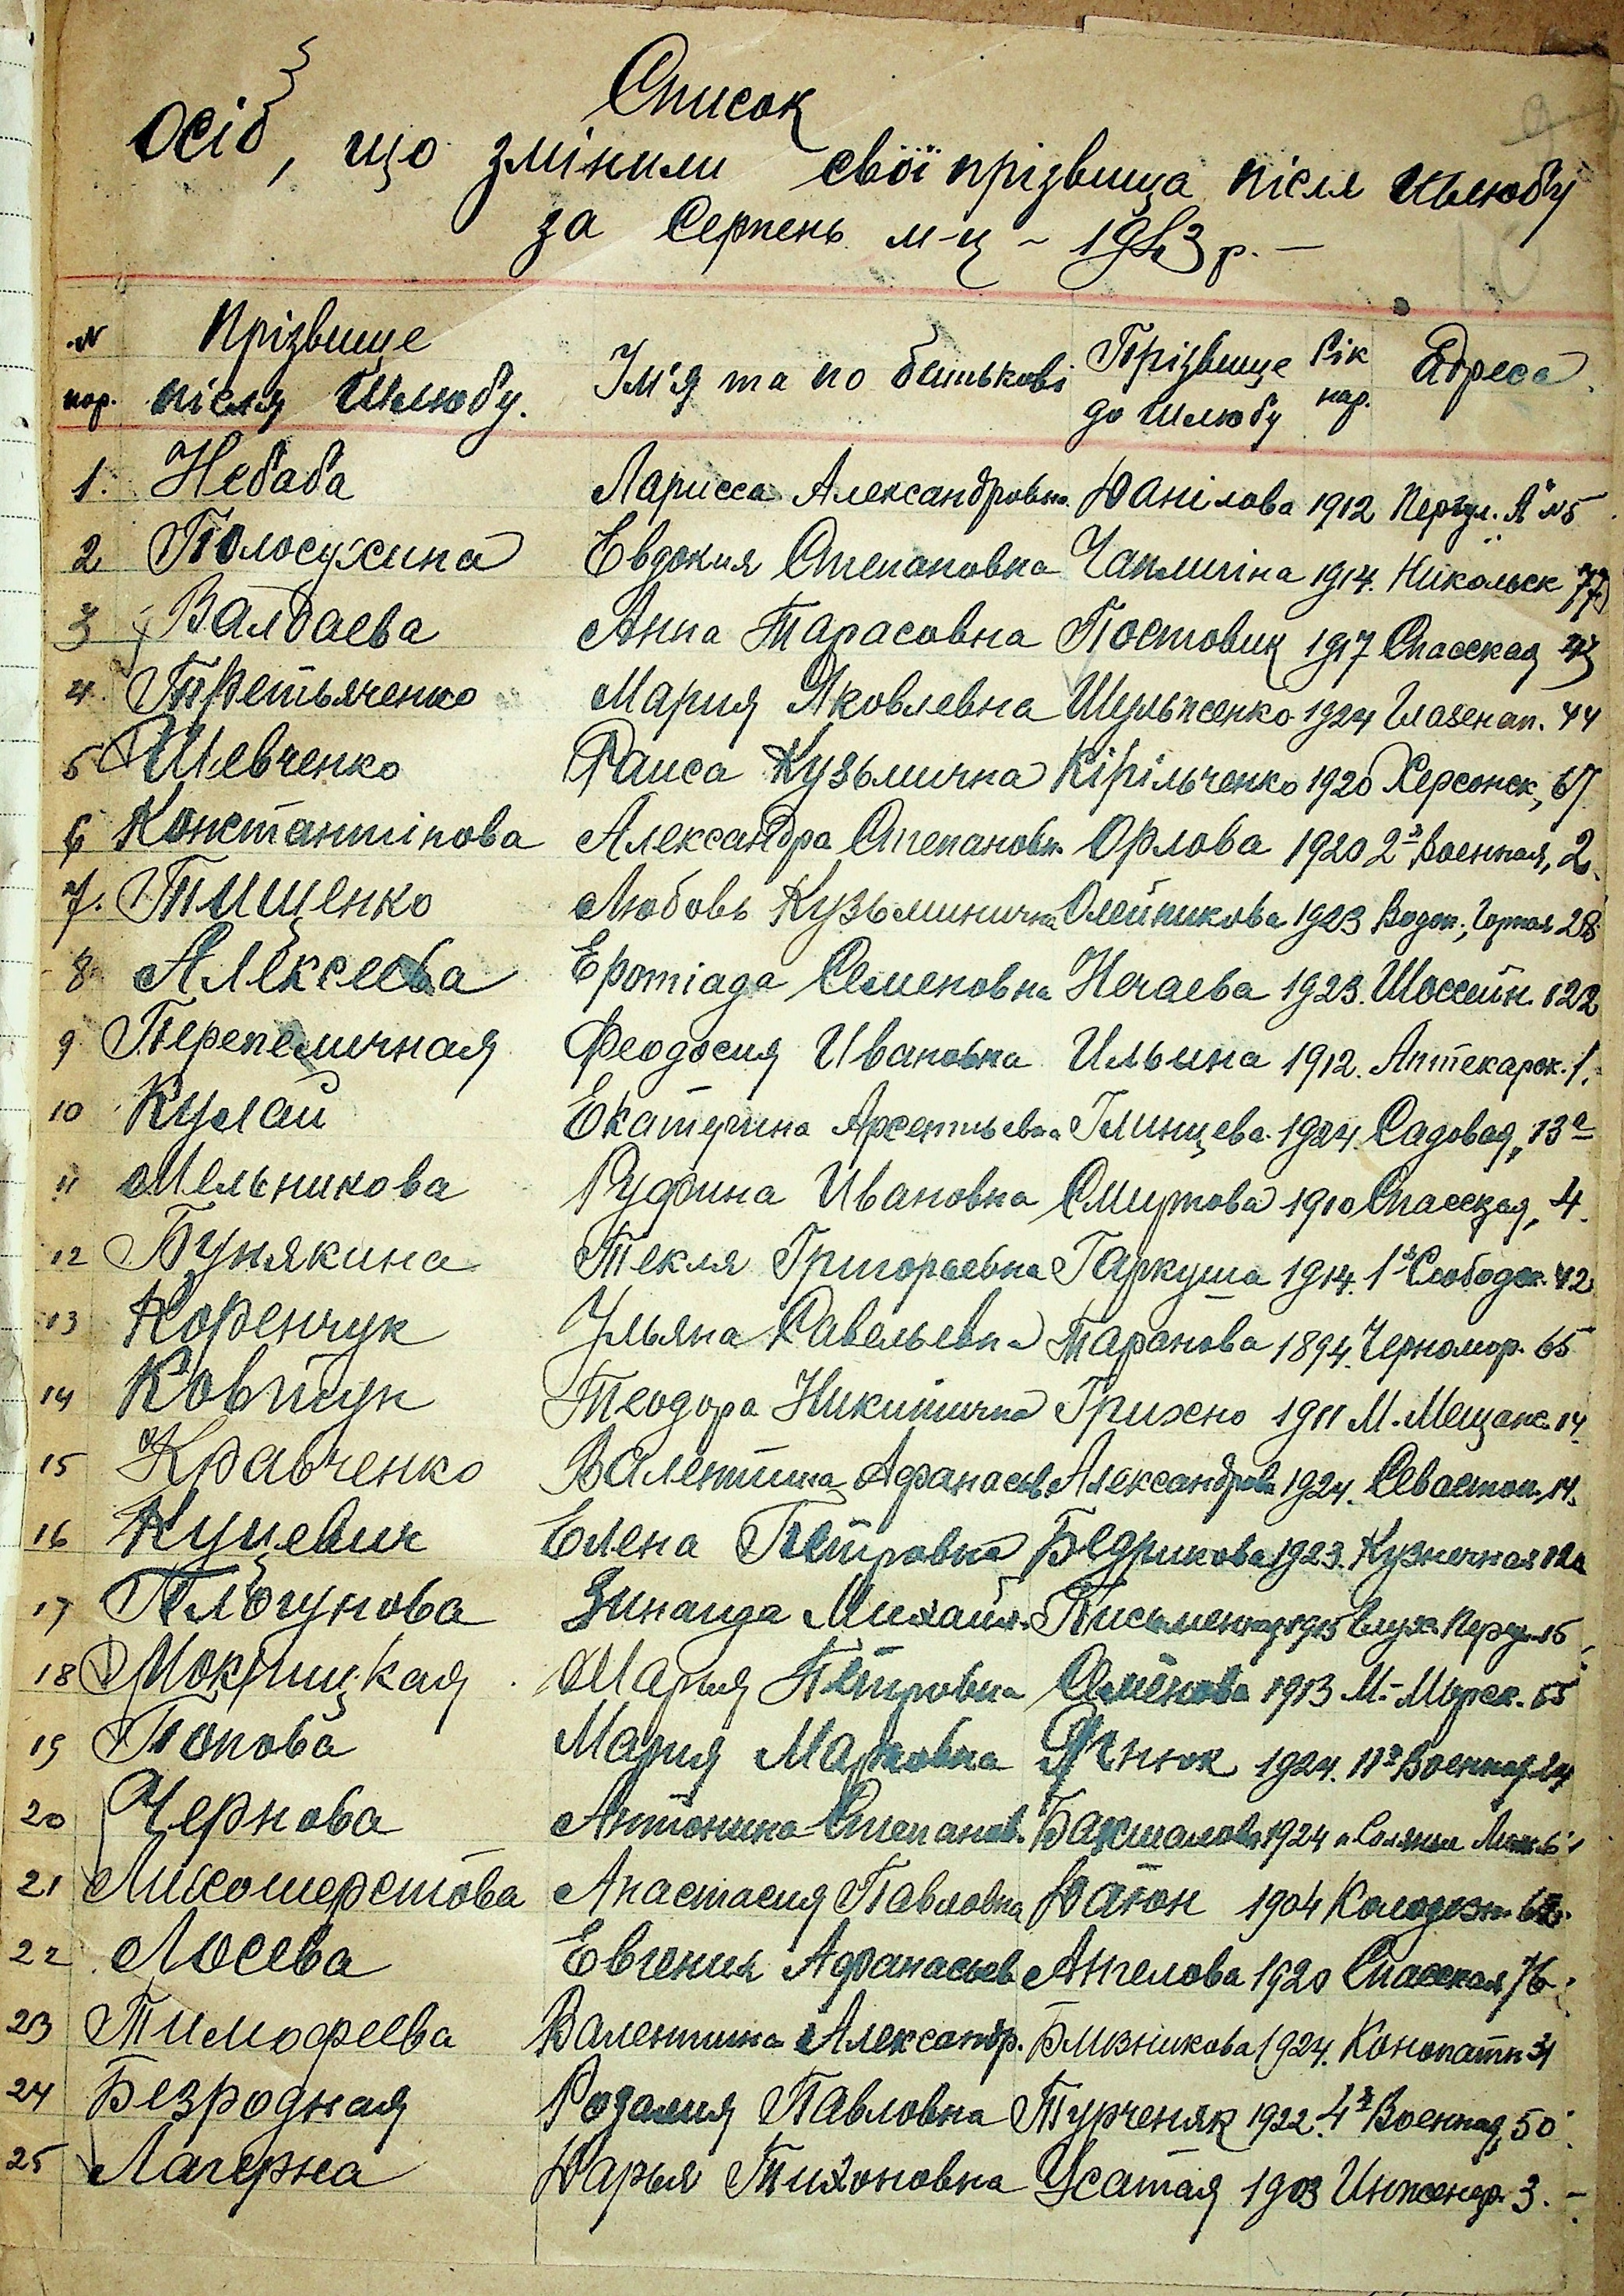 Список
осіб, що змінили свої прізвища після шлюбу
за Серпень м-ц - 1943 р. -
№ пор. Прізвище після шлюбу. Ім'я та по батькові Прізвище до шлюбу Рік нар. Адреса
1. Небаба Ларисса Александровна Данілова 1912 Пер „А" №5
2 Полосухина Евдокия Степановна Чаплигіна 1914. Никольск 77
3 Валбаева Анна Тарасовна Постовик 1917 Спасская
4. Третьяченко Мария Яковлевна Шульженко 1924 Глазенап. 44
5 Шевченко Раиса Кузьминична Кірільченко 1920 Херсонск, 67
6 Константінова Александра Степановн. Орлова 1920 2я Военная, 2.
7. Тищенко Любовь Кузьминична Олейникова 1923 Водоп., Горная 28
8 Алексеева Семеновна Нечаева 1923. Шоссейн. 122
9 Перепеличная Феодосия Ивановна Ильина 1912. Аптекарск. 1.
10 Кулай Екатерина Арсентьевна Глинцева 1924. Садовая, 13а
11 Мельникова Руфина Ивановна Смирнова 1910 Спасская, 4.
12 Бунякина Текля Григорьевна Гаркуша 1914. 1я Слободск. 42
13 Коренчук Ульяна Савельевна Таранова 1894. Черномор. 65
14 Ковтун Теодора Никитична Грихно 1911 М. Мещанс. 14.
15 Кравченко Валентина Афанасьев. Александрова 1924. Севастоп. 14.
16 Куцевич Елена Петровна Бедрикова 1923. Кузнечная 12а
17 Плогунова Зинаида Михайл. 1915 Глух. Пер. 15
18 Мокрицкая Мария Петровна Семёнова 1913 М.-Морск. 55
19 Попова Мария Марковна Яснюк 1924. 11я Военная 24
20 Чернова Антонина Степанов. Бакшалова 1924 Соляные
21 Лихошерстова Анастасия Павловна Датюн 1904 Колодезн.
22 Лосева Евгения Афанасьев. Ангелова 1920 Спасская 76
23 Тимофеева Валентина Александр. Близникова 1924. Конопатн 31
24 Безродная Розалия Павловна Турченяк 1922. 4я Военная, 50
25 Лагерна Дарья Тихоновна Усатая 1903 Инженер. 3. -